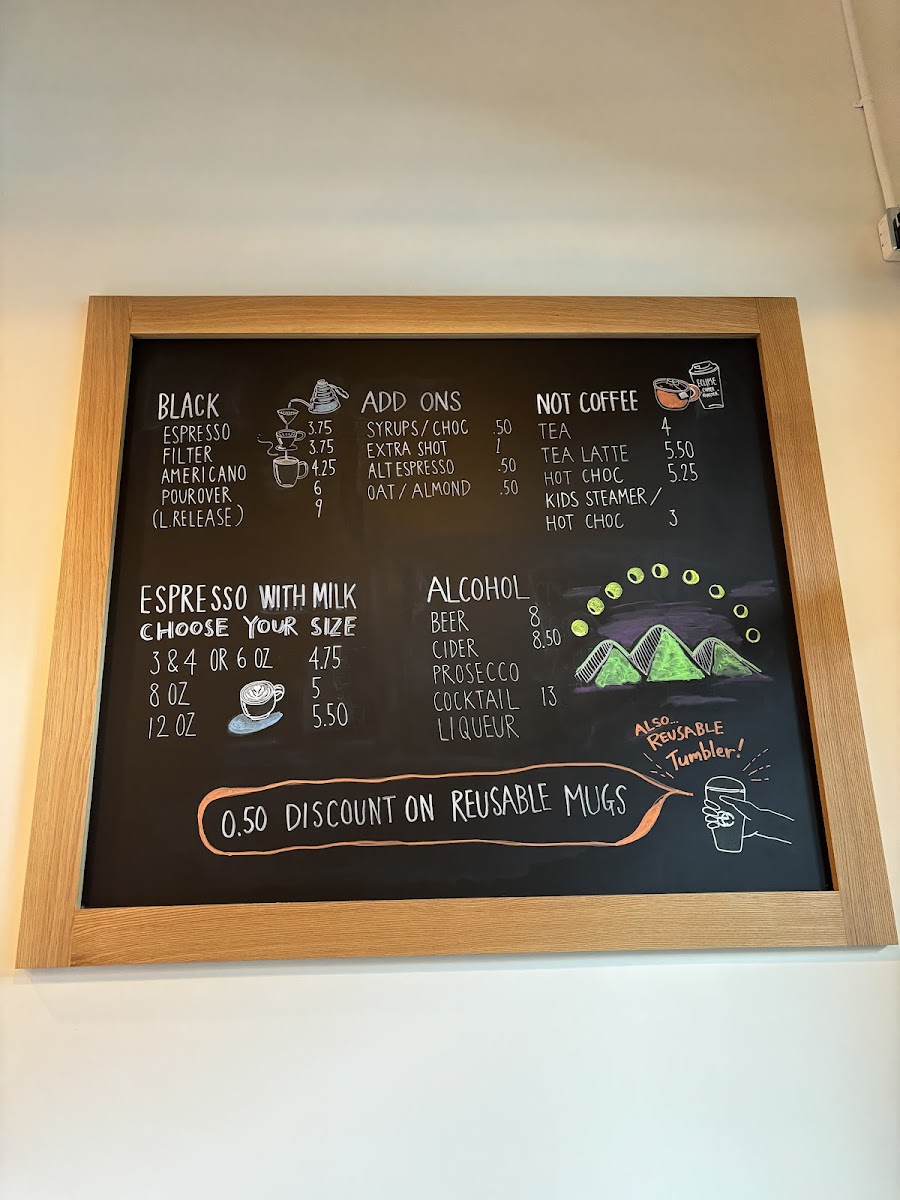 BLACK
ESPRESSO 3.75
FILTER 3.75
AMERICANO 4.25
POUROVER 6
(L.RELEASE) 9
ADD ONS
SYRUPS/CHOC .50
EXTRA SHOT 1
ALT ESPRESSO .50
OAT/ALMOND .50
NOT COFFEE
ECLIPSE
COFFEE
TEA 4
TEA LATTE 5.50
HOT CHOC 5.25
KIDS STEAMER/
HOT CHOC 3
ESPRESSO WITH MILK
CHOOSE YOUR SIZE
3 & 4 OR 6 OZ 4.75
8 OZ 5
12 OZ 5.50
ALCOHOL
BEER 8
CIDER 8.50
PROSECCO
COCKTAIL 13
LIQUEUR
ALSO...
REUSABLE
Tumbler!
0.50 DISCOUNT ON REUSABLE MUGS